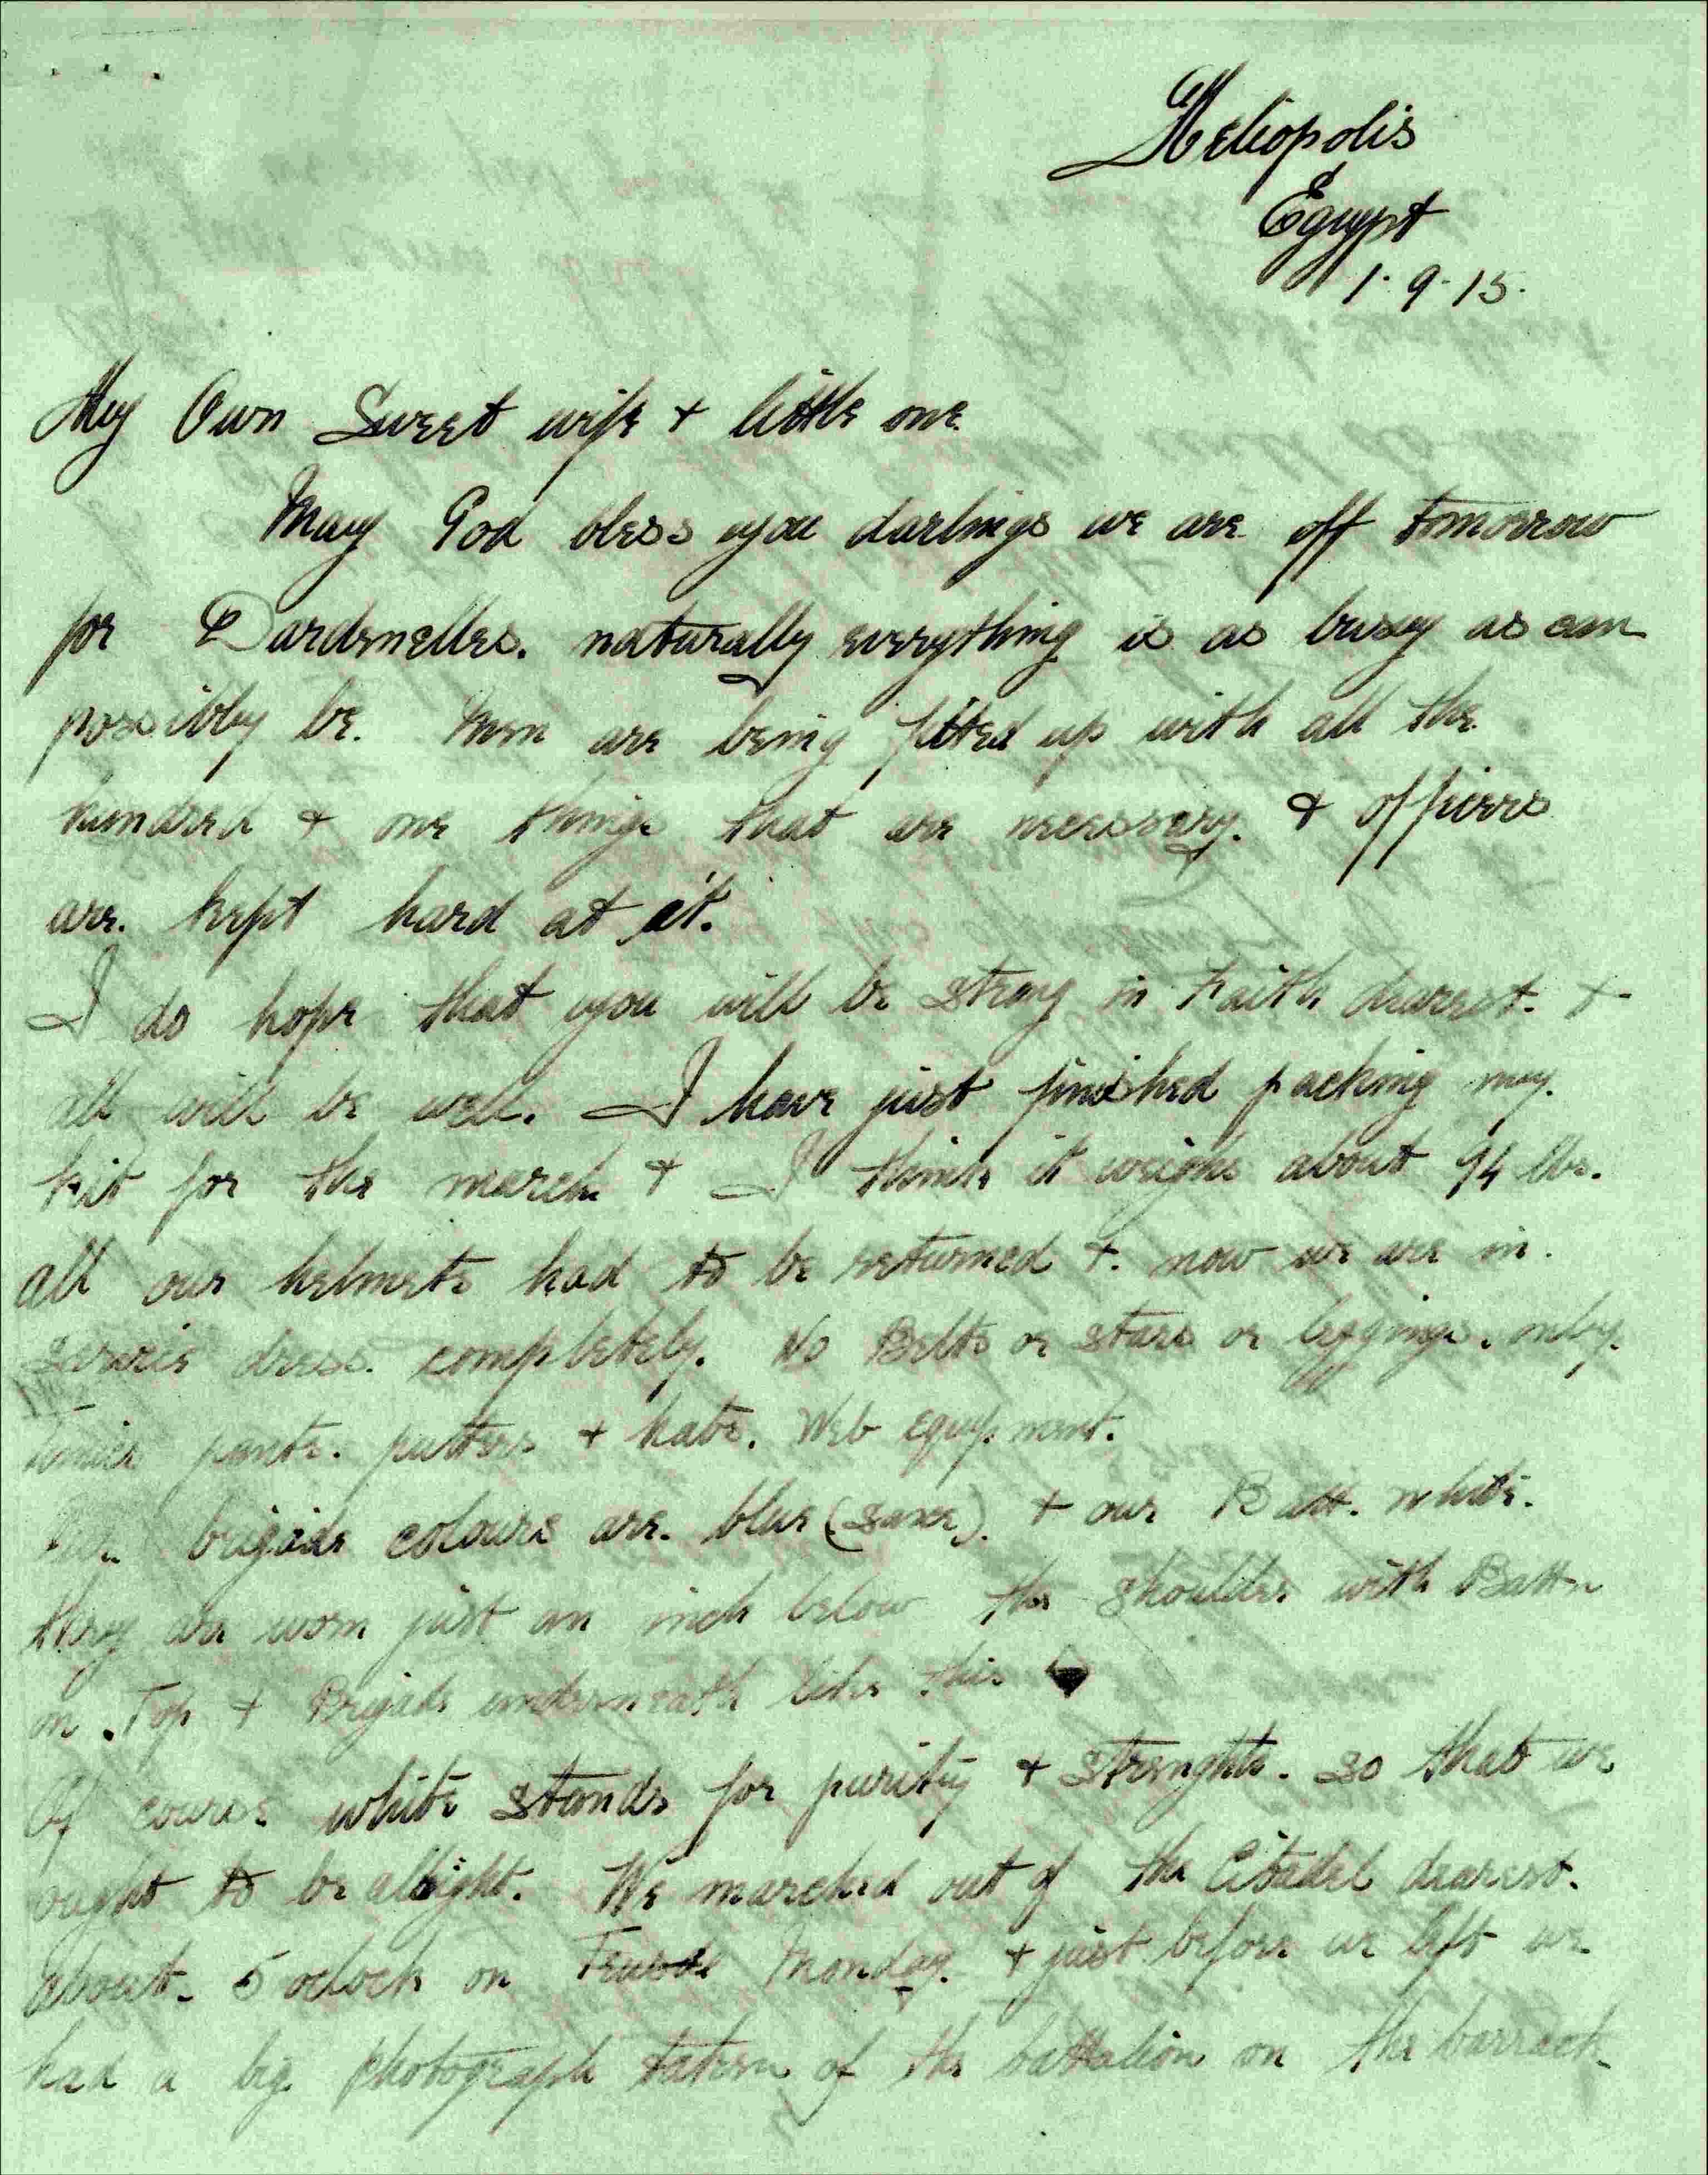 Heliopolis
Egypt
1.9.15.
My Own Sweet wife + little one
May God bless you darlings we are off tomorrow
for Dardenelles. naturally everything is as busy as can
possibly be. Men are being fitted up with all the
hundred & one things that are necessary. & officers
are. kept hard at it.
I do hope that you will be strong in Faith dearest. +
all will be well. I have just finished packing my.
kit for the march + I think it weighs about 94 lbs.
all our helmets had to be returned +. now we are in.
service dress. completely. No Belts or stars or leggings. only.
Tunics pants. puttees + hats. Web equipment.
brigade colours are. blue (saxe). + our Batt. white.
they are worn just an inch below the shoulder with Battn
on Top + Brigade underneath like this
Of course white stands for purity + strenght. so that we
ought to be allright. We marched out of the Citadel dearest.
about. 5 oclock on Tuesda Monday. + just before we left we
had a big photograph taken of the battalion on the barrack